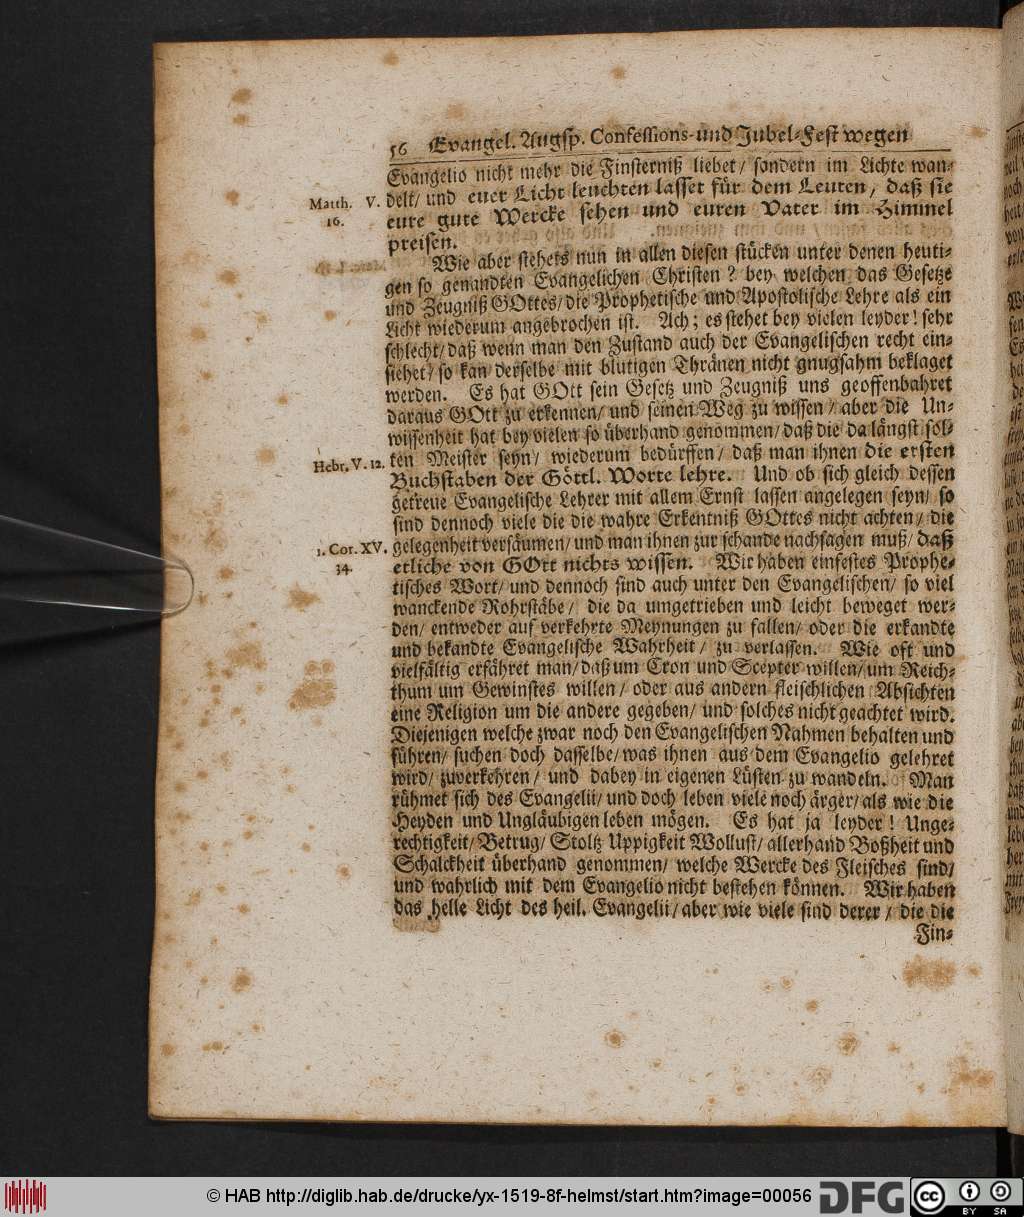 56 Evangel. Augsp. Confessions- und Jubel-Fest wegen
Evangelio nicht mehr die Finsterniß liebet/ sondern im Lichte wan-
Matth. V. 16.
delt/ und euer Licht leuchten lasset für dem Leuten, daß sie
eure gute Wercke sehen und euren Vater im Himmel
preisen.
Wie aber stehets nun in allen diesen stücken unter denen heuti-
gen so genandten Evangelichen Christen? bey welchen das Gesetze
und Zeugniß GOttes/ die Prophetische und Apostolische Lehre als ein
Licht wiederum angebrochen ist. Ach; es stehet bey vielen leyder! sehr
schlecht/ daß wenn man den Zustand auch der Evangelischen recht ein-
siehet/ so kan derselbe mit blutigen Thränen nicht gnugsahm beklaget
werden. Es hat GOtt sein Gesetz und Zeugniß uns geoffenbahret
daraus GOtt zu erkennen/ und seinen Weg zu wissen/ aber die Un-
wissenheit hat bey vielen so überhand genommen/ daß die da längst sol-
Hebr. V. 12.
ten Meister seyn/ wiederum bedürffen/ daß man ihnen die ersten
Buchstaben der Göttl. Worte lehre. Und ob sich gleich dessen
getreue Evangelische Lehrer mit allem Ernst lassen angelegen seyn/ so
sind dennoch viele die die wahre Erkentniß GOttes nicht achten/ die
1. Cor. XV. 34.
gelegenheit versäumen/ und man ihnen zur schande nachsagen muß/ daß
etliche von GOtt nichts wissen. Wir haben ein festes Prophe-
tisches Wort/ und dennoch sind auch unter den Evangelischen/ so viel
wanckende Rohrstäbe/ die da umgetrieben und leicht beweget wer-
den/ entweder auf verkehrte Meynungen zu fallen/ oder die erkandte
und bekandte Evangelische Wahrheit/ zu verlassen. Wie oft und
vielfältig erfähret man/ daß um Cron und Scepter willen/ um Reich-
thum um Gewinstes willen/ oder aus andern fleischlichen Absichten
eine Religion um die andere gegeben/ und solches nicht geachtet wird.
Diejenigen welche zwar noch den Evangelischen Nahmen behalten und
führen/ suchen doch dasselbe/ was ihnen aus dem Evangelio gelehret
wird/ zuverkehren/ und dabey in eigenen Lüsten zu wandeln. Man
rühmet sich des Evangelii/ und doch leben viele noch ärger/ als wie die
Heyden und Ungläubigen leben mögen. Es hat ja leyder! Unge-
rechtigkeit/ Betrug/ Stoltz Uppigkeit Wollust/ allerhand Boßheit und
Schalckheit überhand genommen/ welche Wercke des Fleisches sind/
und wahrlich mit dem Evangelio nicht bestehen können. Wir haben
das helle Licht des heil. Evangelii/ aber wie viele sind derer/ die die
Fin-
© HAB http://diglib.hab.de/drucke/yx-1519-8f-helmst/start.htm?image=00056 DFG CC BY SA